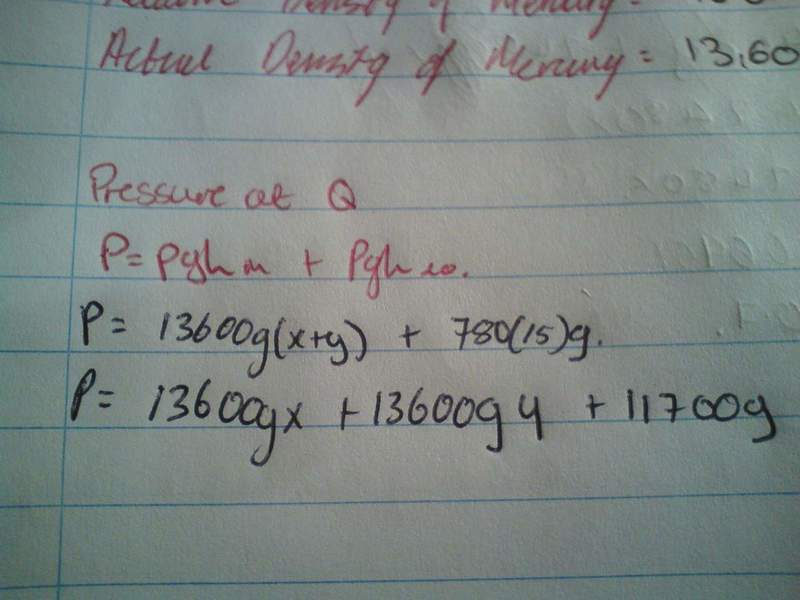 Density of Mercury =
Actual Density of Mercury = 13,60
Pressure at Q
P= ρgh m + ρgh w.
P= 13600g(x+y) + 780(15)g.
P= 13600gx +13600gy + 11700g